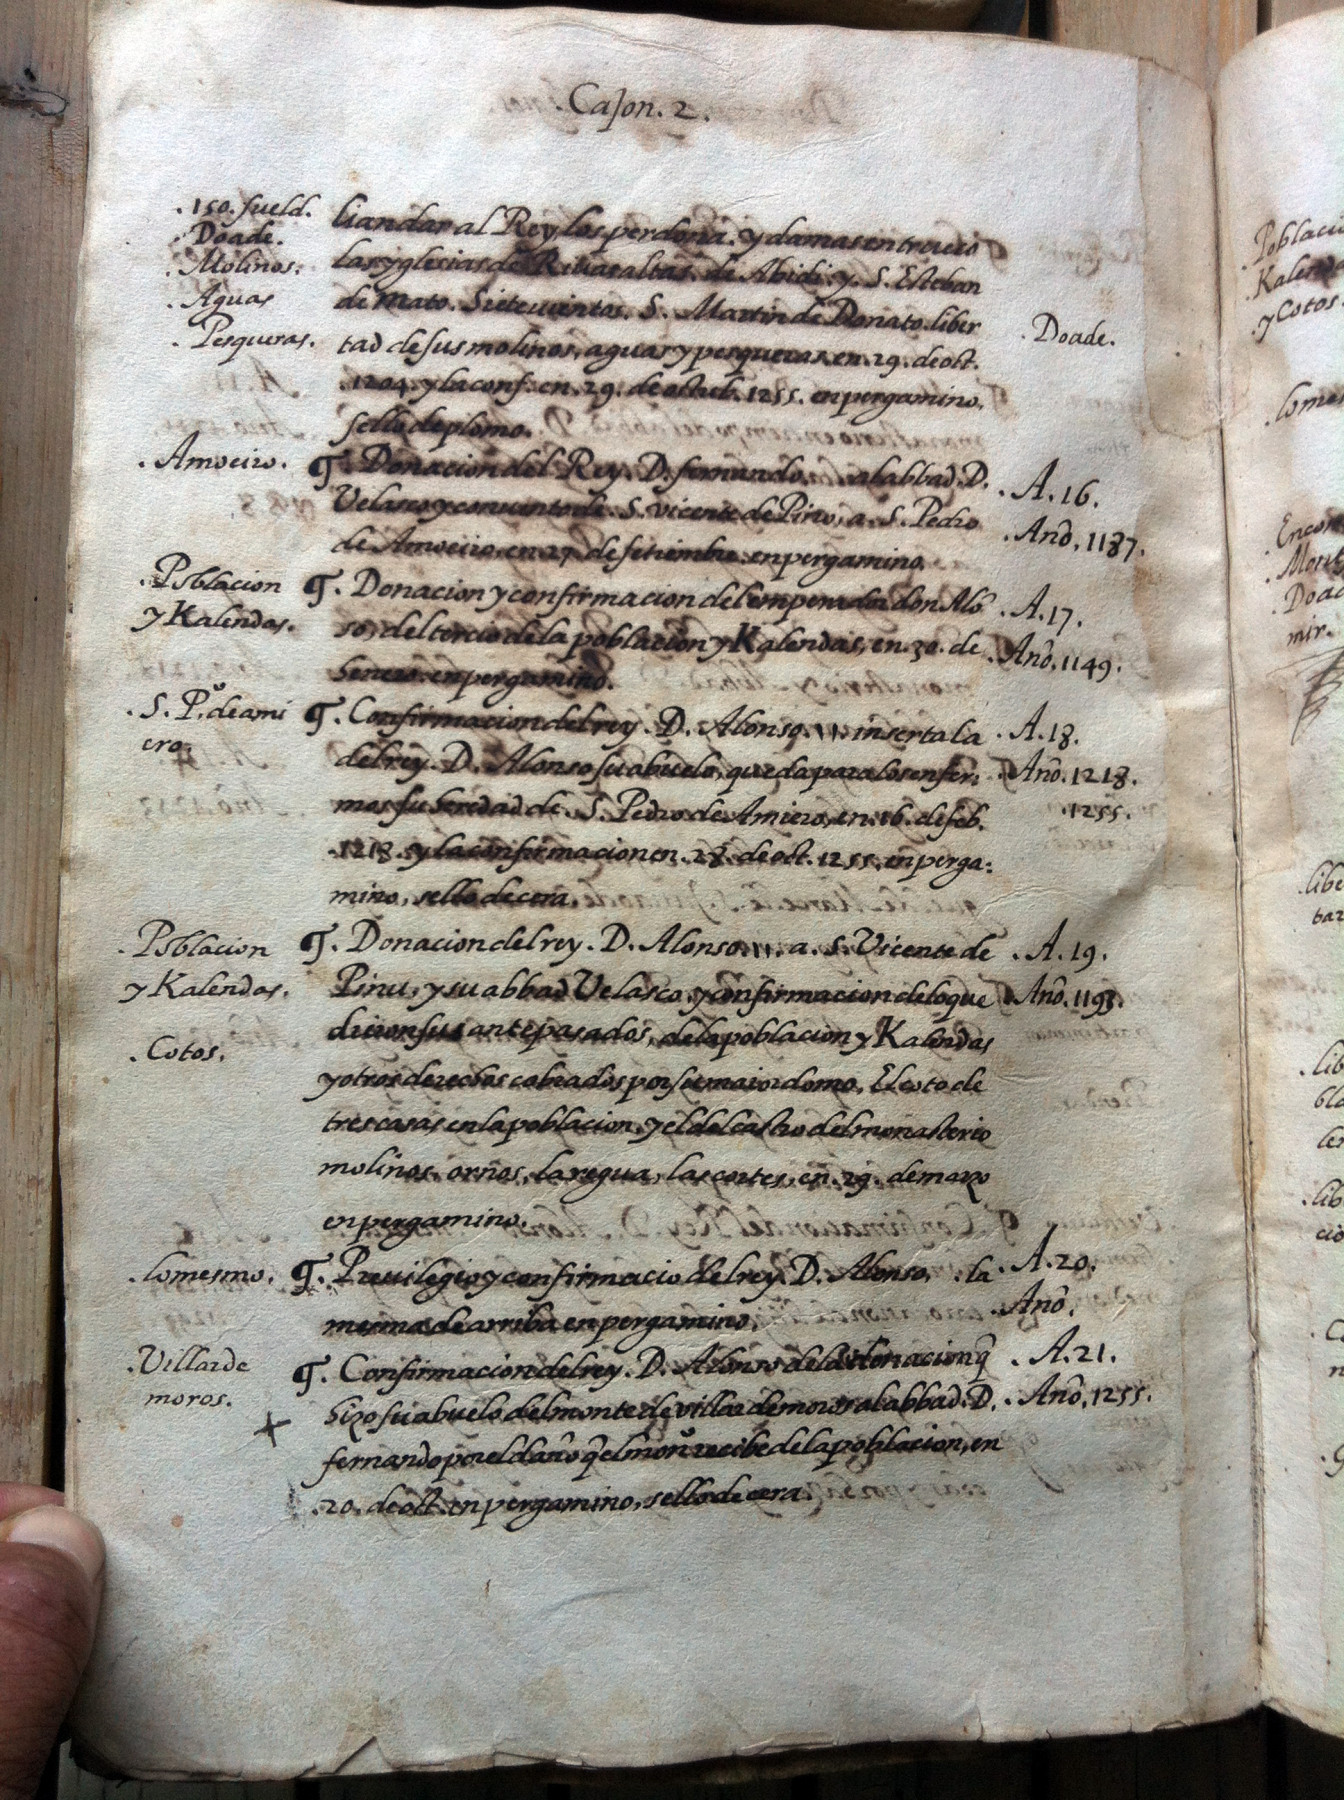 .Cajon. 2.
.150. sueld.
Doade.
.Molinos.
.Aguas
.Pesqueras.
lian dar al Rey, los perdona. y da mas en trueco
las yglesias de Rivas altas, de Abidi. y. S. Esteban
de Mato. Sieteventos. S. Martin de Donato. liber
tad de sus molinos, aguas y pesqueras. en. 29. de oct.
.1204. y la conf. en. 29. de octub. 1255. en pergamino.
sello de plomo.
.Doade.
.Amoeiro.
¶. Donacion del Rey. D. fernando. al abbad. D.
Velasco y convento de. S. vicente de Pino, a. S. Pedro
de Amoeiro. en 27. de setiembre. en pergamino.
.A. 16.
.Año. 1187.
.Poblacion
y Kalendas.
¶. Donacion y confirmacion del emperador don Alõ
so, del tercio de la poblacion y Kalendas, en. 30. de
henero. en pergamino.
.A. 17.
.Año. 1149.
.S. P.º de ami
ero.
¶. Confirmacion del rey. D. Alonso. 11. inserta la
del rey. D. Alonso su abuelo, que da para los enfer:
mos su heredad de. S. Pedro de Amiero, en. 16. de feb.
.1218. y la confirmacion en. 28. de oct. 1255. en perga:
mino, sello de cera.
.A. 18.
.Año. 1218.
.1255.
.Poblacion
y Kalendas.
.Cotos.
¶. Donacion del rey. D. Alonso. 11. a. S. Vicente de
Pinu, y su abbad Velasco, y confirmacion de lo que
dieron sus antepasados, de la poblacion y Kalendas
y otros derechos cobrados por su maiordomo. El coto de
tres casas en la poblacion. y el del castro del monasterio
molinos, ornos, la regua, las cortes, en. 29. de marzo
en pergamino.
.A. 19.
.Año. 1193.
.lo mesmo.
¶. Previlegio y confirmacio del rey. D. Alonso, .la
mesma de arriba en pergamino.
.A. 20.
.Año.
.Villar de
moros.
¶. Confirmacion del rey. D. Alonso de la donacion q̃
hizo su abuelo del monte de villar de moros al abbad. D.
fernando por el daño q̃ el monº recibe de la poblacion, en
.20. de oct. en pergamino, sello de cera.
.A. 21.
.Año. 1255.